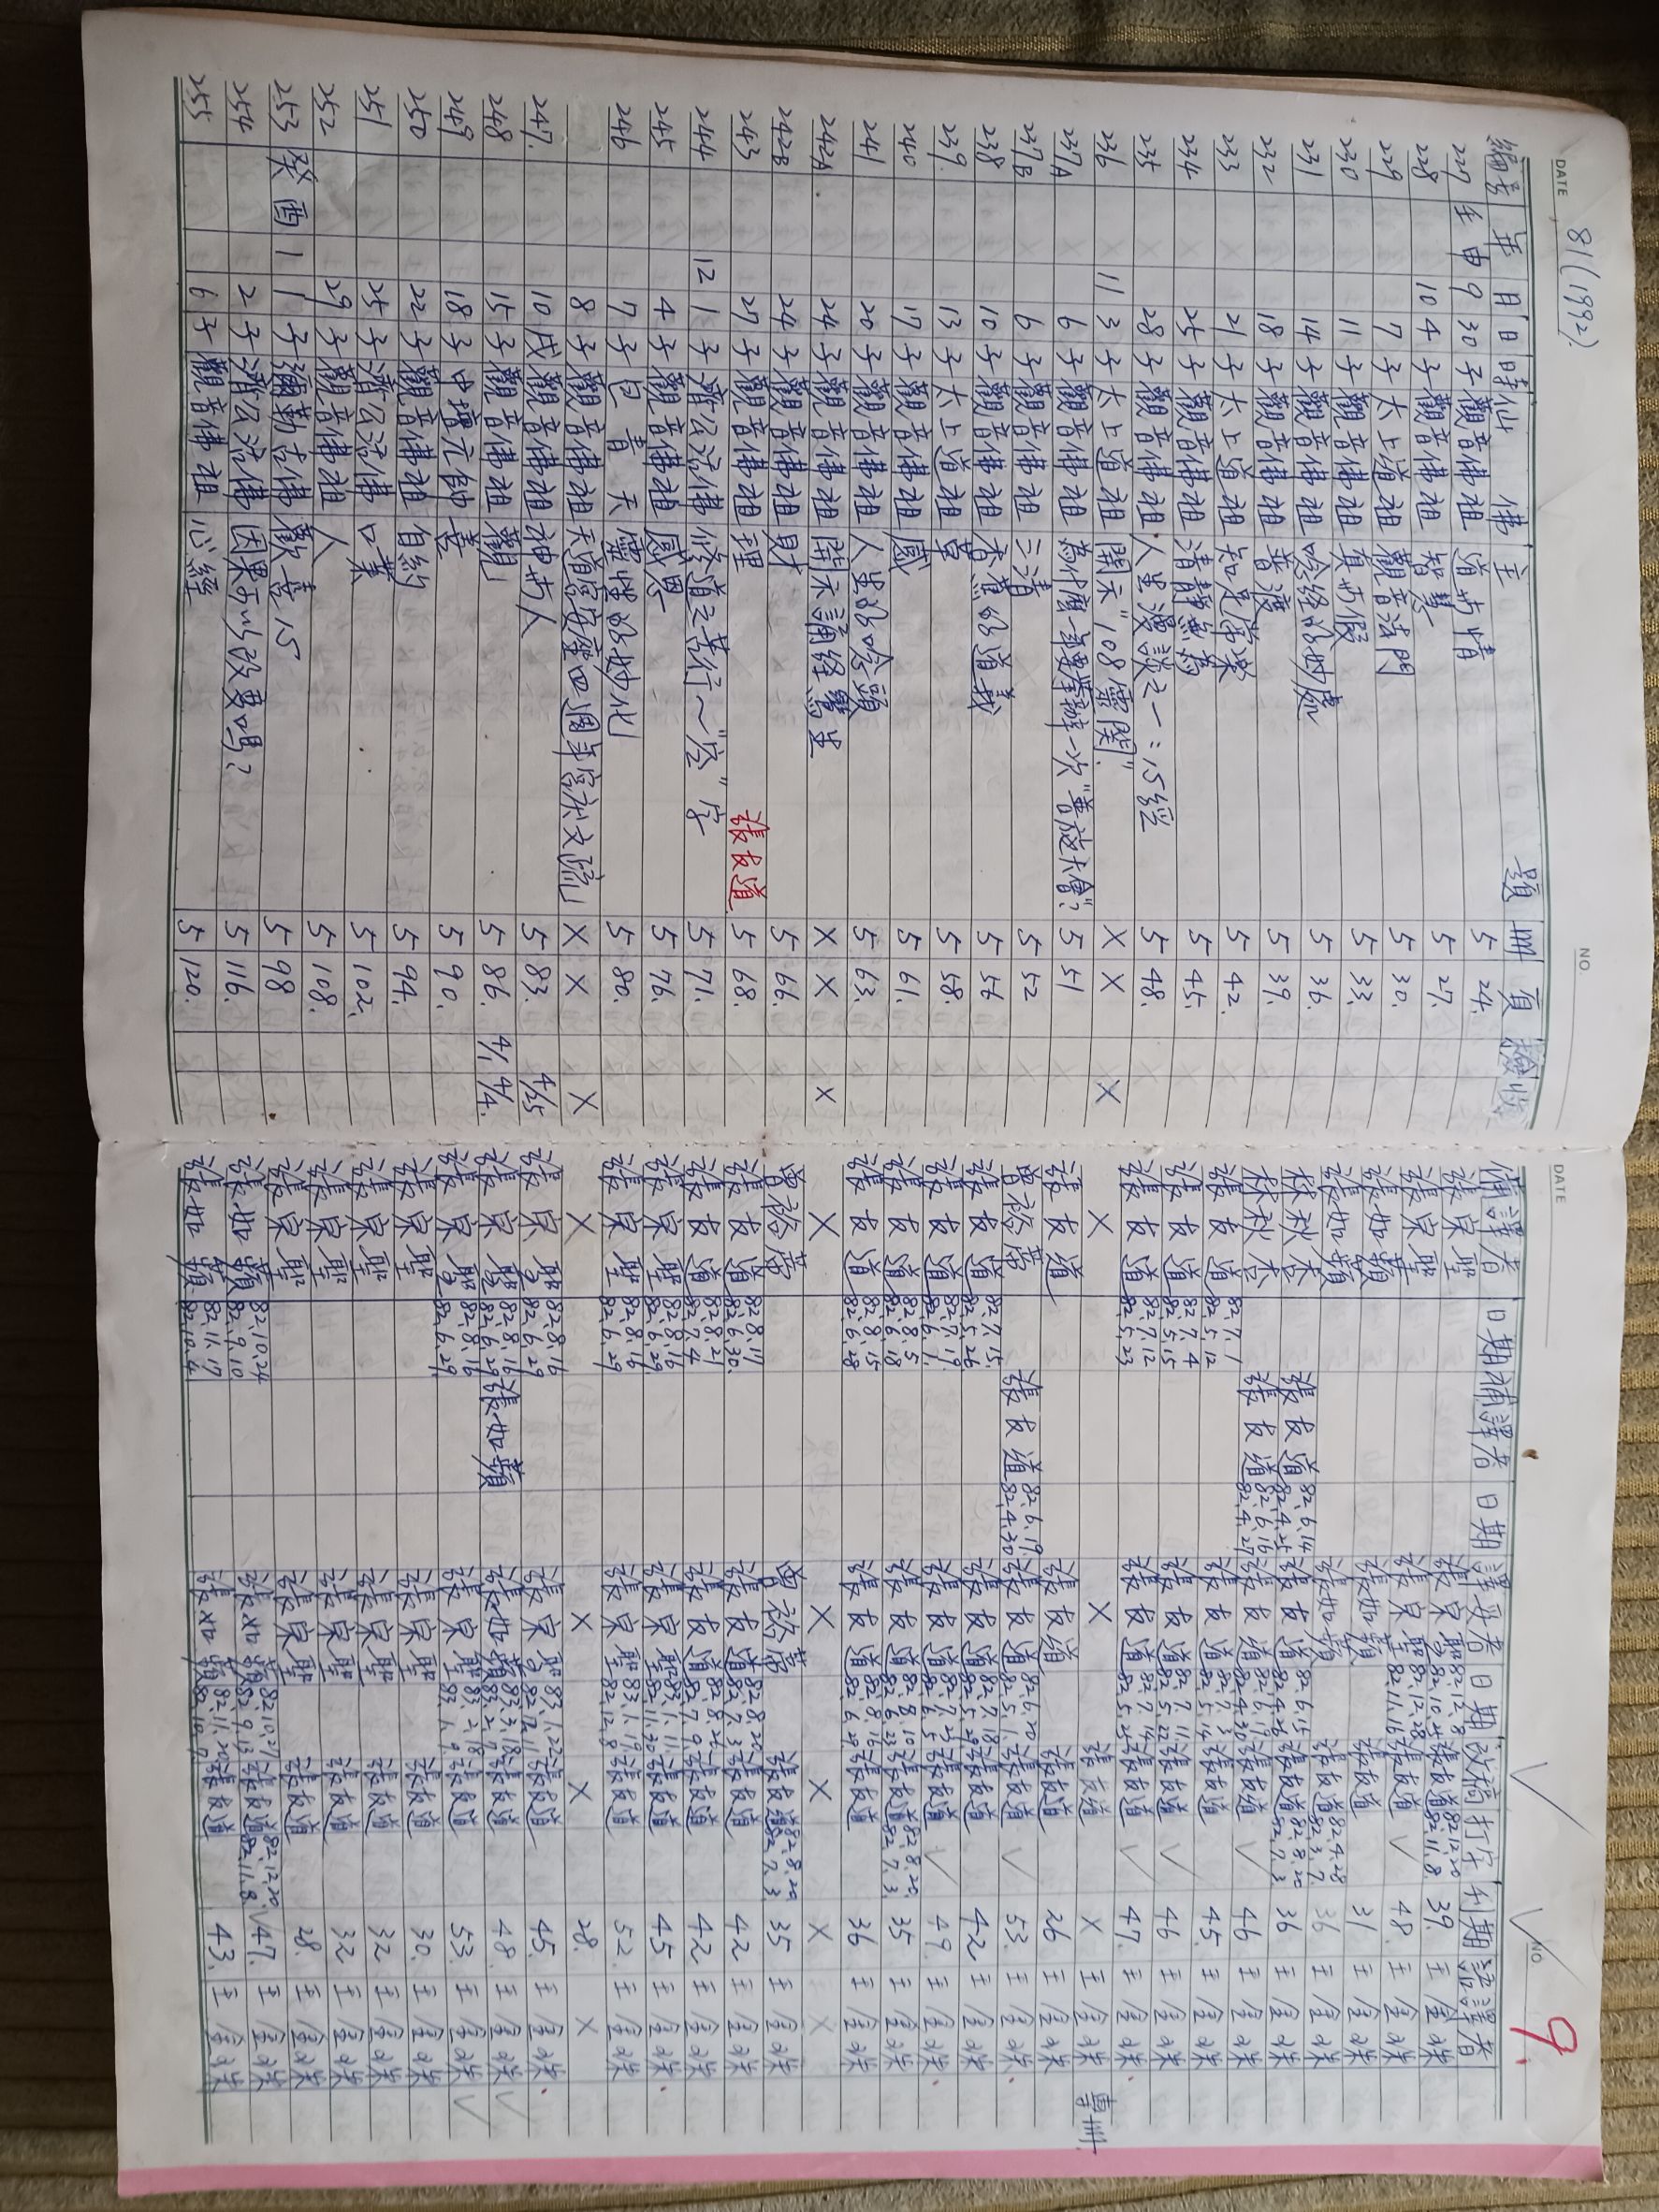 DATE 81(1992)
NO.
編號 年 月 日 時 仙佛 主題 冊 頁 撿收
227 壬申 9 30 子 觀音佛祖 道與情 5 24.
228 10 4 子 觀音佛祖 智慧 5 27.
229 7 子 太上道祖 觀音法門 5 30.
230 11 子 觀音佛祖 真與假 5 33.
231 14 子 觀音佛祖 唸經的妙處 5 36.
232 18 子 觀音佛祖 普渡 5 39.
233 21 子 太上道祖 知足常樂 5 42.
234 25 子 觀音佛祖 清靜無為 5 45.
235 28 子 觀音佛祖 人生漫談之一:心經 5 48.
236 11 3 子 太上道祖 開示"108靈關" X X X
237A 6 子 觀音佛祖 為何渡一事要舉辦一次"普渡大會"? 5 51
237B 6 子 觀音佛祖 三清 5 52
238 10 子 觀音佛祖 看無的道我 5 54
239 13 子 太上道祖 5 58.
240 17 子 觀音佛祖 感 5 61.
241 20 子 觀音佛祖 人生的唸頭 5 63.
242A 24 子 觀音佛祖 開示誦經 X X X
242B 24 子 觀音佛祖 財 5 66
243 27 子 觀音佛祖 理 張友道 5 68.
244 12 1 子 濟公活佛 修道之苦行~"空"字 5 71.
245 4 子 觀音佛祖 感恩 5 76.
246 7 子 包青天 靈學的妙化 5 80.
8 子 觀音佛祖 天道宮安座四週年宮示文疏 X X X
247. 10 戌 觀音佛祖 神與人 5 83. 4/25
248 15 子 觀音佛祖 觀 5 86. 4/1 4/4.
249 18 子 中壇元帥 善 5 90.
250 22 子 觀音佛祖 自約 5 94.
251 25 子 濟公活佛 口業 5 102.
252 29 子 觀音佛祖 人 5 108.
253 癸酉 1 1 子 彌勒古佛 歡喜心 5 98
254 2 子 濟公活佛 因果可以改變嗎? 5 116.
255 6 子 觀音佛祖 心經 5 120.
DATE
NO. 9.
日期 補譯者 日期 譯更者 日期 改稿 打字 刊期
張宗聖 張宗聖 82.12.8 82.10.25 張友道 82.12.20 82.11.8 39. 王金珠
張宗聖 張宗聖 82.12.28 82.11.16 張友道 ✓ 48. 王金珠
張如蘋 張如蘋 張友道 31. 王金珠
張如蘋 張如蘋 張友道 82.4.28 82.3.7 36 王金珠
林秋杏 張友道 82.6.14 82.4.25 張友道 82.6.15 82.4.26 張友道 82.8.20 82.7.3 36 王金珠
林秋杏 張友道 82.6.16 82.4.27 張友道 82.6.19 82.4.30 張友道 ✓ 46 王金珠
張友道 82.7.1 82.5.12 張友道 82.7.3 82.5.14 張友道 45. 王金珠
張友道 82.7.4 82.5.15 張友道 82.7.11 82.5.22 張友道 ✓ 46 王金珠
張友道 82.7.12 82.5.23 張友道 82.7.14 82.5.25 張友道 ✓ 47. 王金珠
X X 張友道 X 王金珠 專冊
張友道 張友道 張友道 26 王金珠
曾裕蒂 張友道 82.6.19 82.4.30 張友道 82.6.20 82.5.1 張友道 ✓ 53. 王金珠
張友道 82.7.15. 82.5.26 張友道 82.7.18 82.5.29 張友道 42 王金珠
張友道 82.7.19. 82.6.1. 張友道 82.7.23 82.6.5 張友道 ✓ 49. 王金珠
張友道 82.8.5 82.6.18 張友道 82.8.10 82.6.23 張友道 82.8.20. 82.7.3 35 王金珠
張友道 82.8.15 82.6.28 張友道 82.8.16 82.6.29 張友道 36 王金珠
X X X X X
曾裕蒂 曾裕蒂 張友道 82.8.20 82.7.3 35 王金珠
張友道 82.8.17 82.6.30. 張友道 82.8.20 82.7.3 張友道 42 王金珠
張友道 82.8.21 82.7.4 張友道 82.8.26 82.7.9. 張友道 42 王金珠
張宗聖 82.8.16 82.6.29. 張宗聖 83.1.11. 82.11.30 張友道 45. 王金珠
張宗聖 82.8.16 82.6.29 張宗聖 83.1.19. 82.12.8 張友道 52. 王金珠
X X X 28. X
張宗聖 82.8.16 82.6.29 張宗聖 83.1.22 82.12.11. 張友道 45. 王金珠
張宗聖 82.8.16 82.6.29 張如蘋 張如蘋 83.3.18 83.2.7. 張友道 48. 王金珠 ✓
張宗聖 82.8.16 82.6.29. 張宗聖 83.2.18 83.1.9. 張友道 53. 王金珠 ✓
張宗聖 張宗聖 張友道 30. 王金珠
張宗聖 張宗聖 張友道 32 王金珠
張宗聖 張宗聖 張友道 32 王金珠
張宗聖 張宗聖 張友道 28. 王金珠
張如蘋 82.10.24 82.9.10 張如蘋 82.10.27 82.9.13 張友道 82.12.20 82.11.8. ✓ 47. 王金珠
張如蘋 82.11.17 82.10.4 張如蘋 82.11.20 82.10.7. 張友道 43. 王金珠